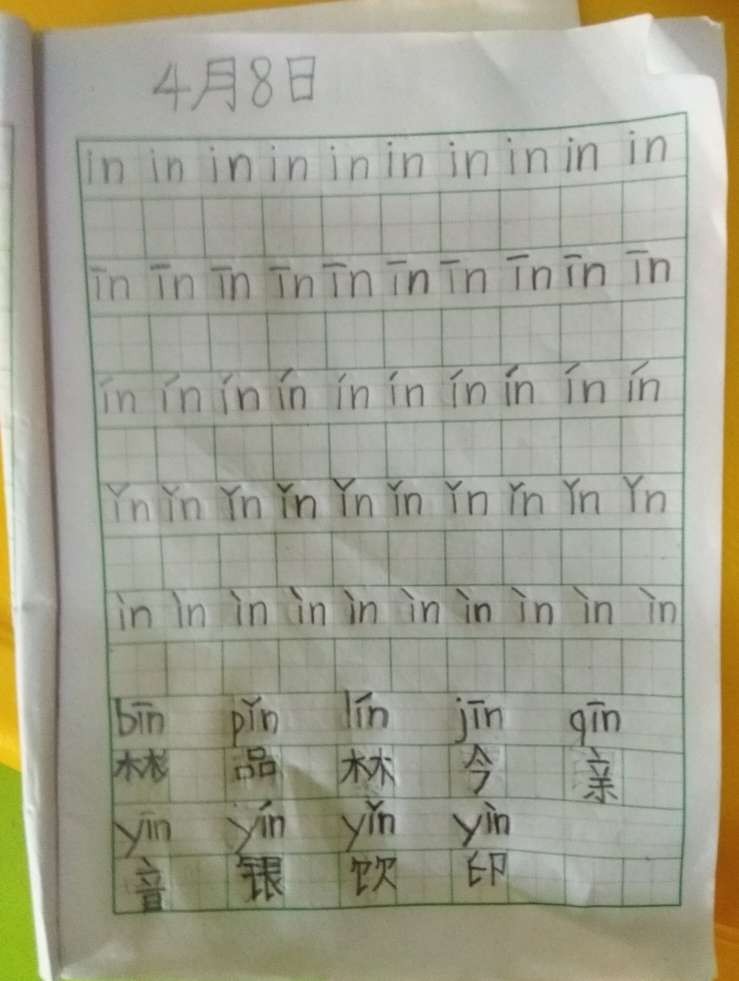 4月8日
in in in in in in in in in in
īn īn īn īn īn īn īn īn īn īn
ín ín ín ín ín ín ín ín ín ín
ǐn ǐn ǐn ǐn ǐn ǐn ǐn ǐn ǐn ǐn
ìn ìn ìn ìn ìn ìn ìn ìn ìn ìn
bīn pǐn lín jīn qīn
彬 品 林 今 亲
yīn yín yǐn yìn
音 银 饮 印